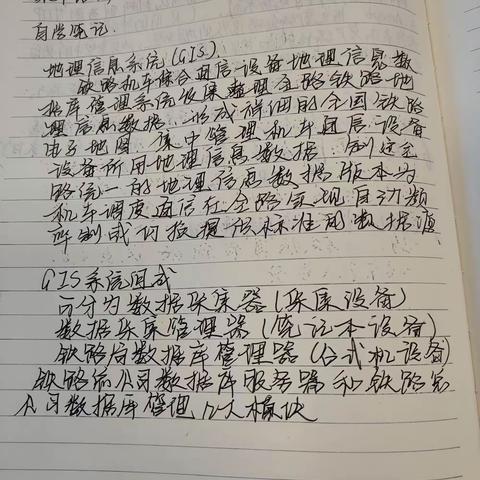 自学笔记.
地理信息系统(GIS)
铁路机车综合通信设备地理信息数
据库管理系统收集整理全路铁路地
理信息数据, 形成详细的全国铁路
电子地图, 集中管理机车通信设备
设备所用地理信息数据, 制定全
路统一的地理信息数据版本为
机车调度通信在全路实现自动频
所制式切换提供标准的数据源
GIS系统组成
可分为数据采集器(采集设备)
数据采集管理器(笔记本设备)
铁路局数据库管理器(台式机设备)
铁路局公司数据库服务器和铁路总
公司数据库管理几大模块